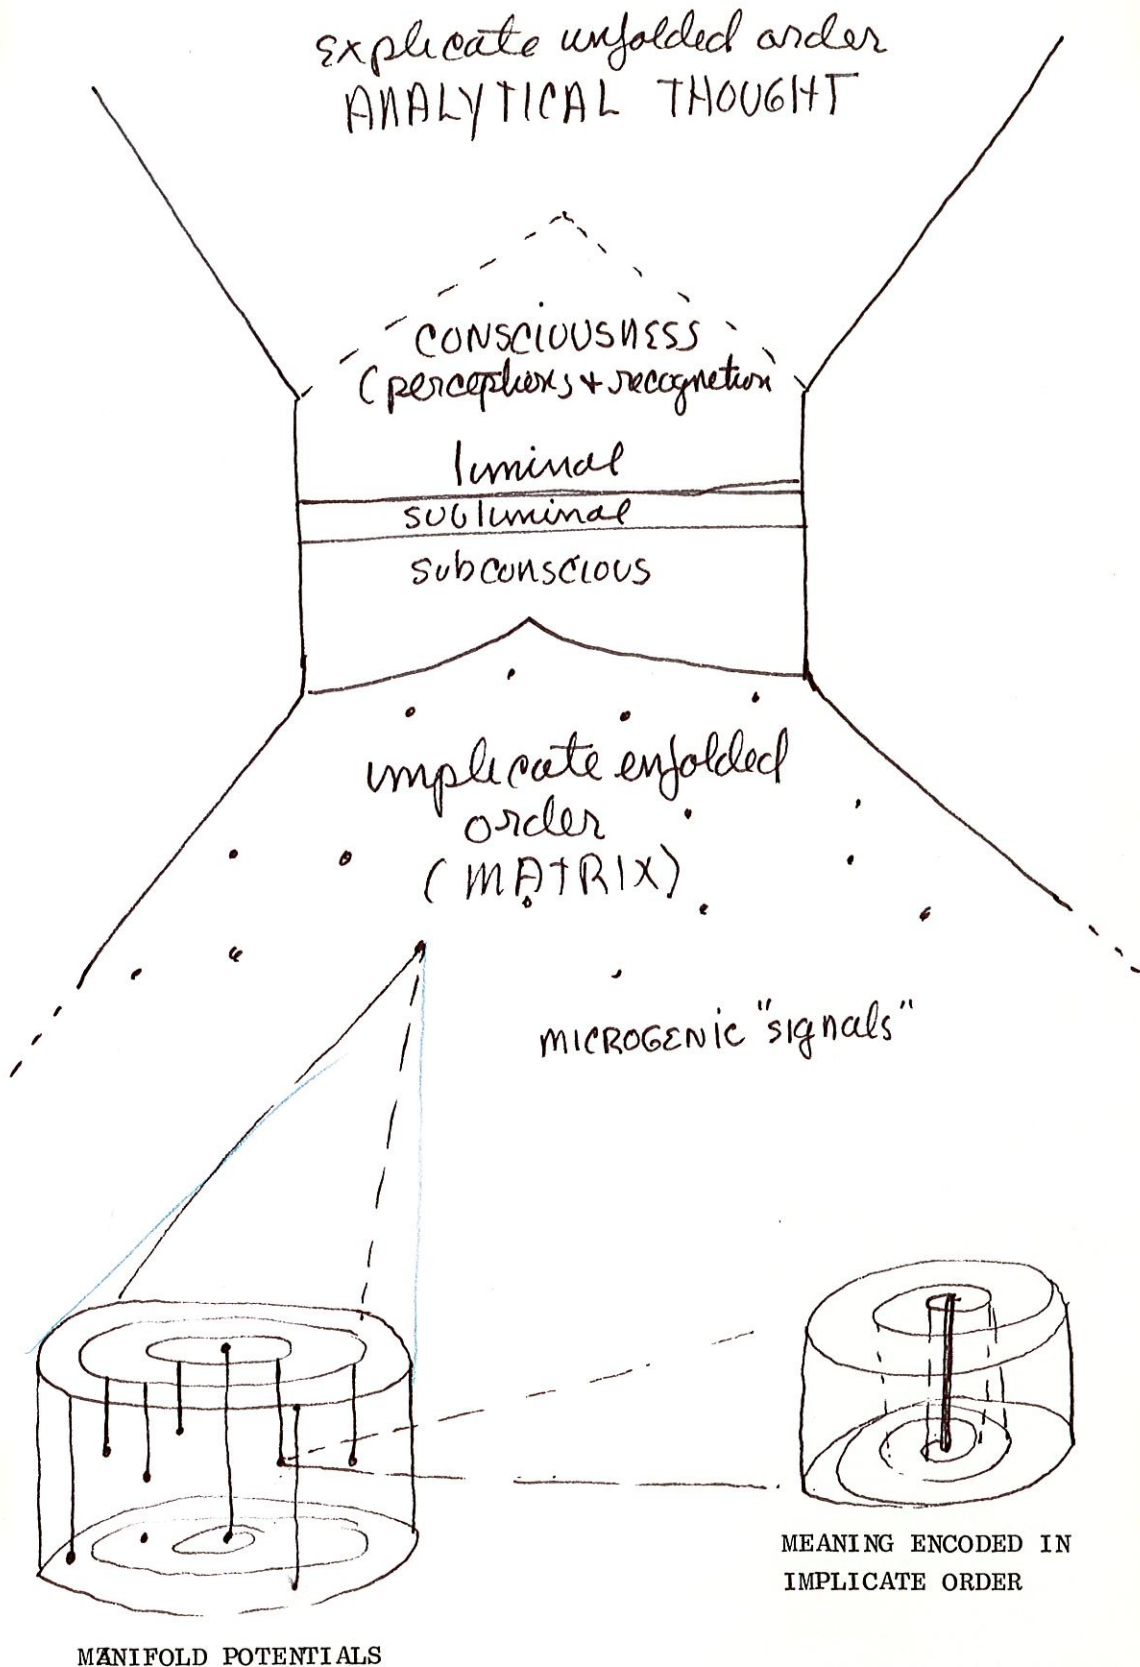 explicate unfolded order
ANALYTICAL THOUGHT
CONSCIOUSNESS
(perceptions + recognition
luminal
subluminal
subconscious
implicate enfolded
order
(MATRIX)
MICROGENIC "signals"
MEANING ENCODED IN
IMPLICATE ORDER
MANIFOLD POTENTIALS